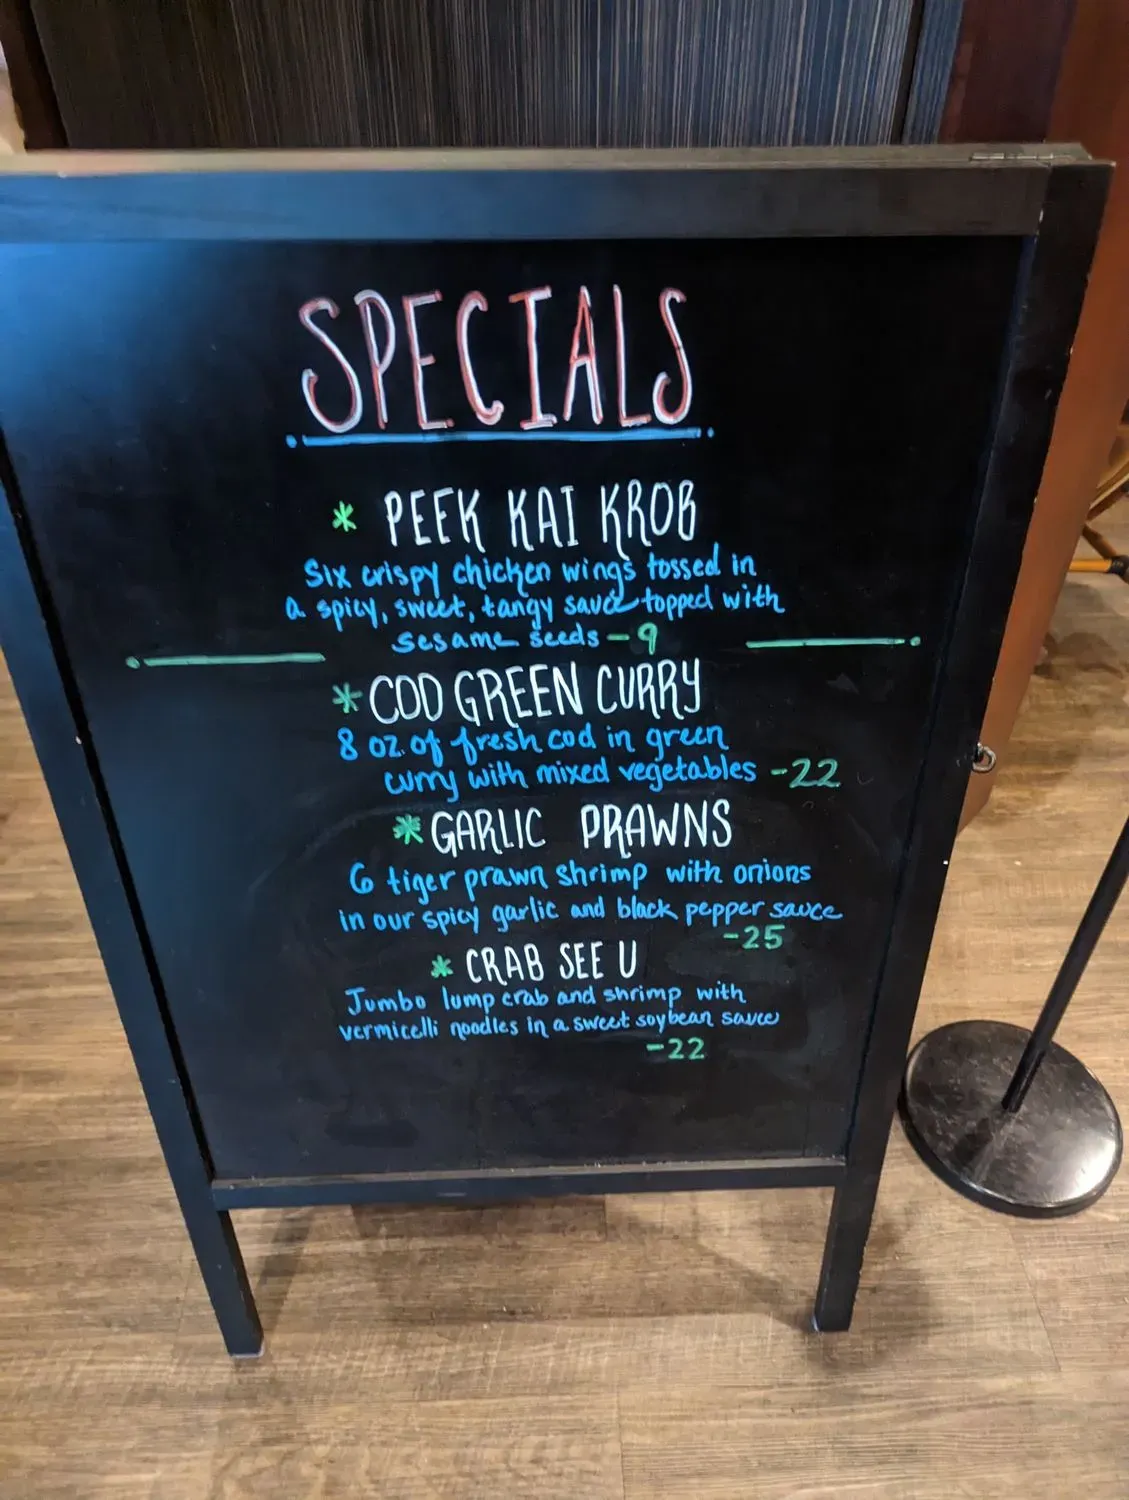 SPECIALS
* PEEK KAI KROB
Six crispy chicken wings tossed in
a spicy, sweet, tangy sauce topped with
sesame seeds - 9
* COD GREEN CURRY
8 oz. of fresh cod in green
curry with mixed vegetables - 22
* GARLIC PRAWNS
6 tiger prawn shrimp with onions
in our spicy garlic and black pepper sauce
- 25
* CRAB SEE U
Jumbo lump crab and shrimp with
vermicelli noodles in a sweet soybean sauce
- 22